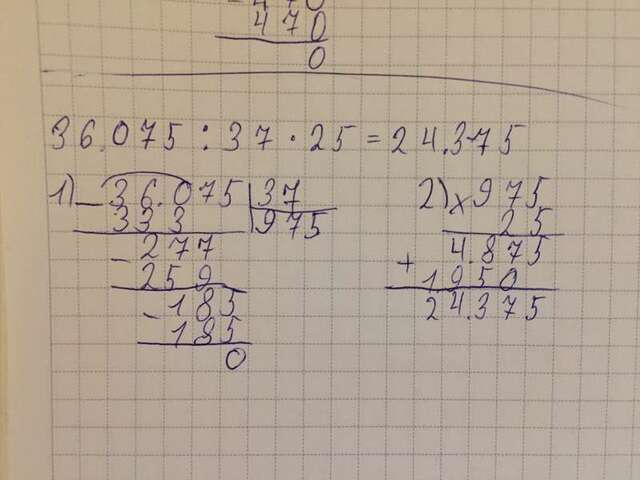 470
0
36.075 : 37 · 25 = 24.375
1) - 36.075 | 37
333 | 975
- 277
259
- 185
185
0
2) x 975
25
4.875
+ 1950
24.375